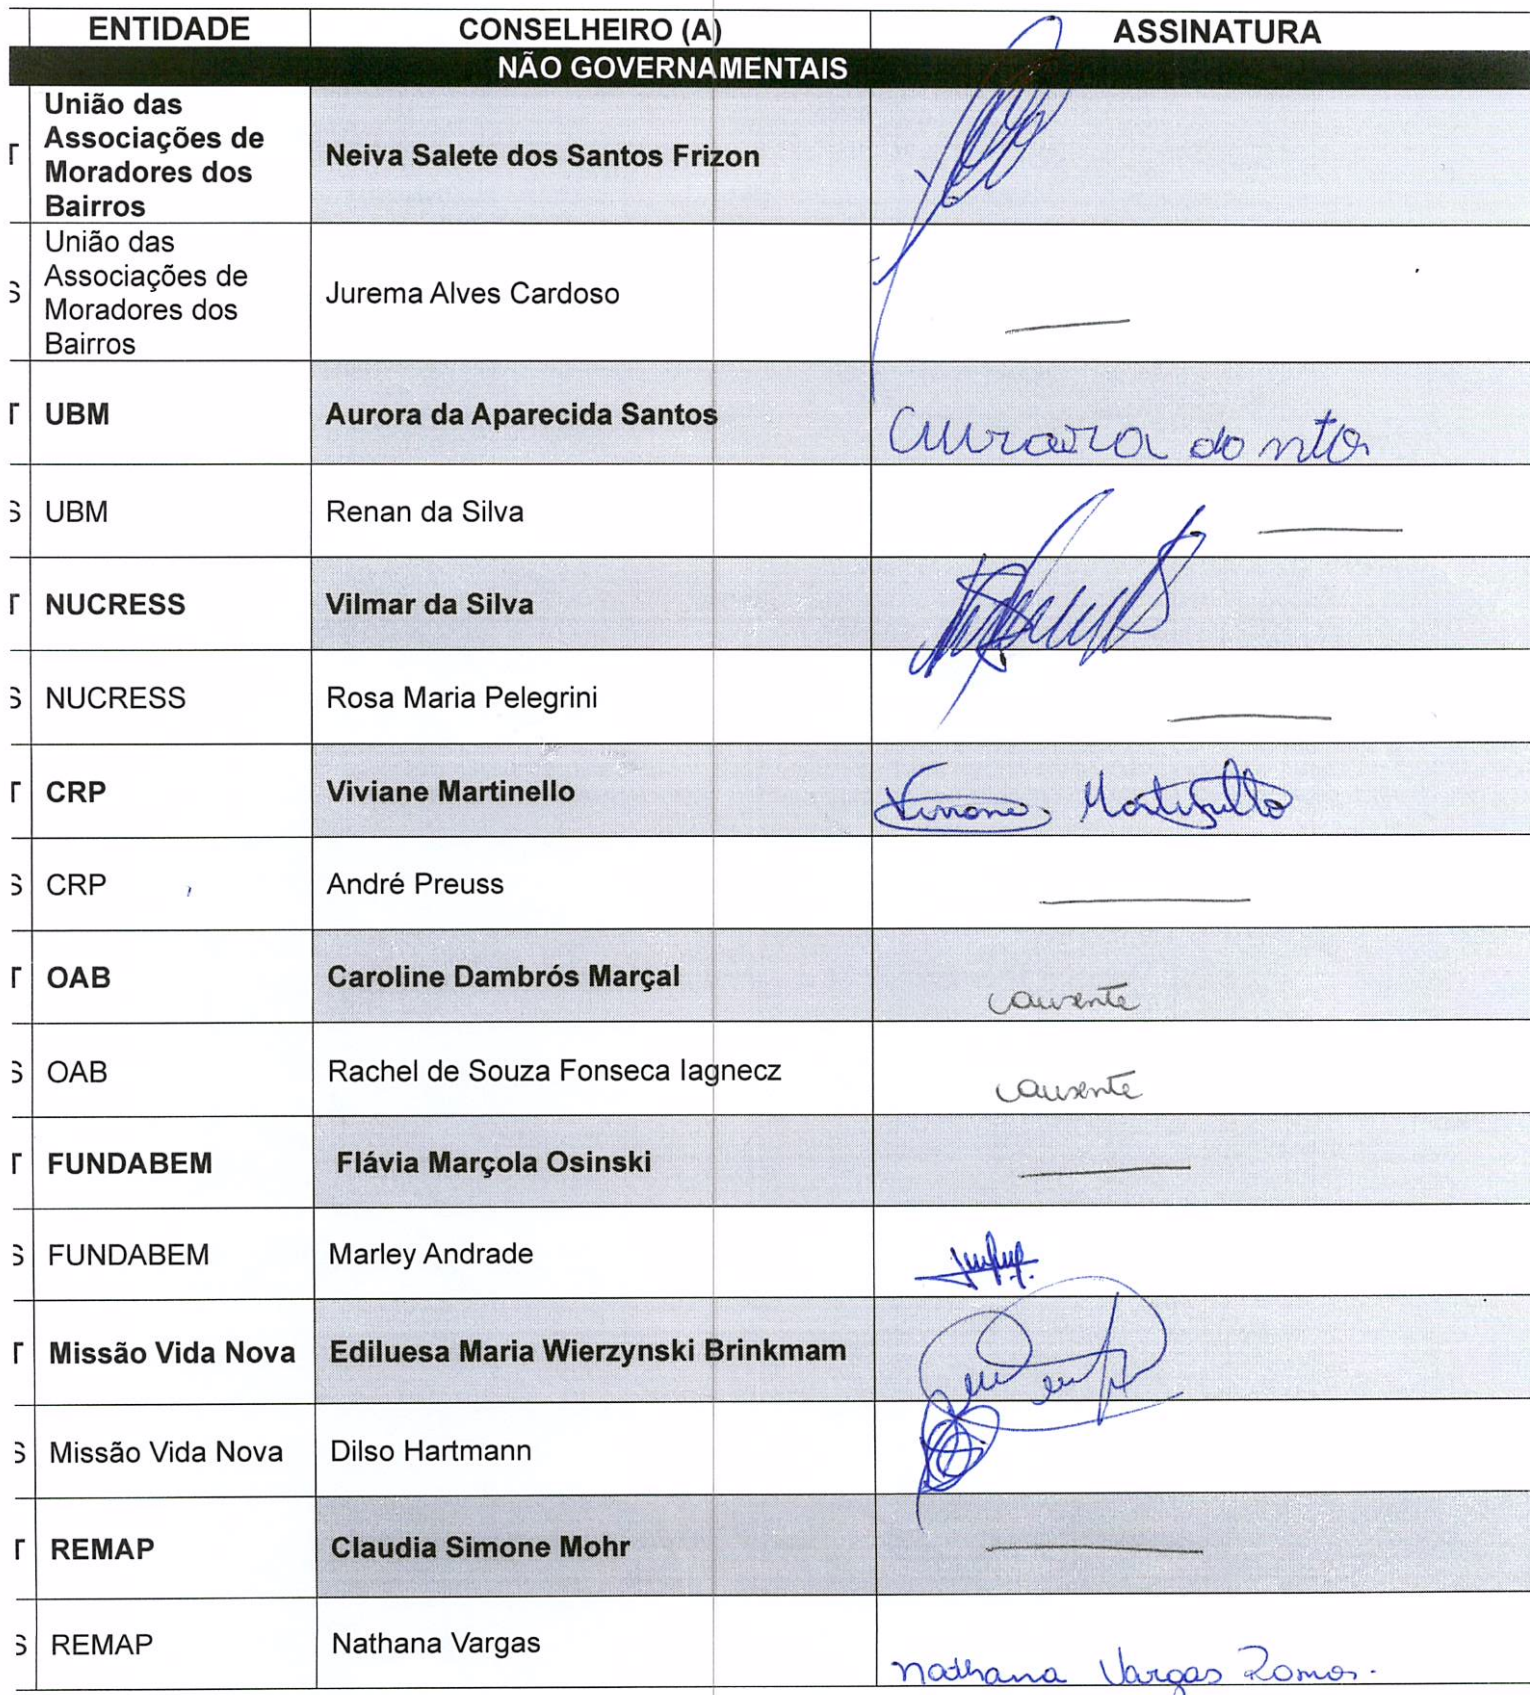 ENTIDADE CONSELHEIRO (A) ASSINATURA
NÃO GOVERNAMENTAIS
União das
Associações de
Moradores dos
Bairros
T Neiva Salete dos Santos Frizon
União das
Associações de
Moradores dos
Bairros
S Jurema Alves Cardoso
T UBM Aurora da Aparecida Santos
S UBM Renan da Silva
T NUCRESS Vilmar da Silva
S NUCRESS Rosa Maria Pelegrini
T CRP Viviane Martinello Viviane Martinello
S CRP André Preuss
T OAB Caroline Dambrós Marçal ausente
S OAB Rachel de Souza Fonseca Iagnecz ausente
T FUNDABEM Flávia Marçola Osinski
S FUNDABEM Marley Andrade
T Missão Vida Nova Ediluesa Maria Wierzynski Brinkmam
S Missão Vida Nova Dilso Hartmann
T REMAP Claudia Simone Mohr
S REMAP Nathana Vargas Nathana Vargas Ramos.